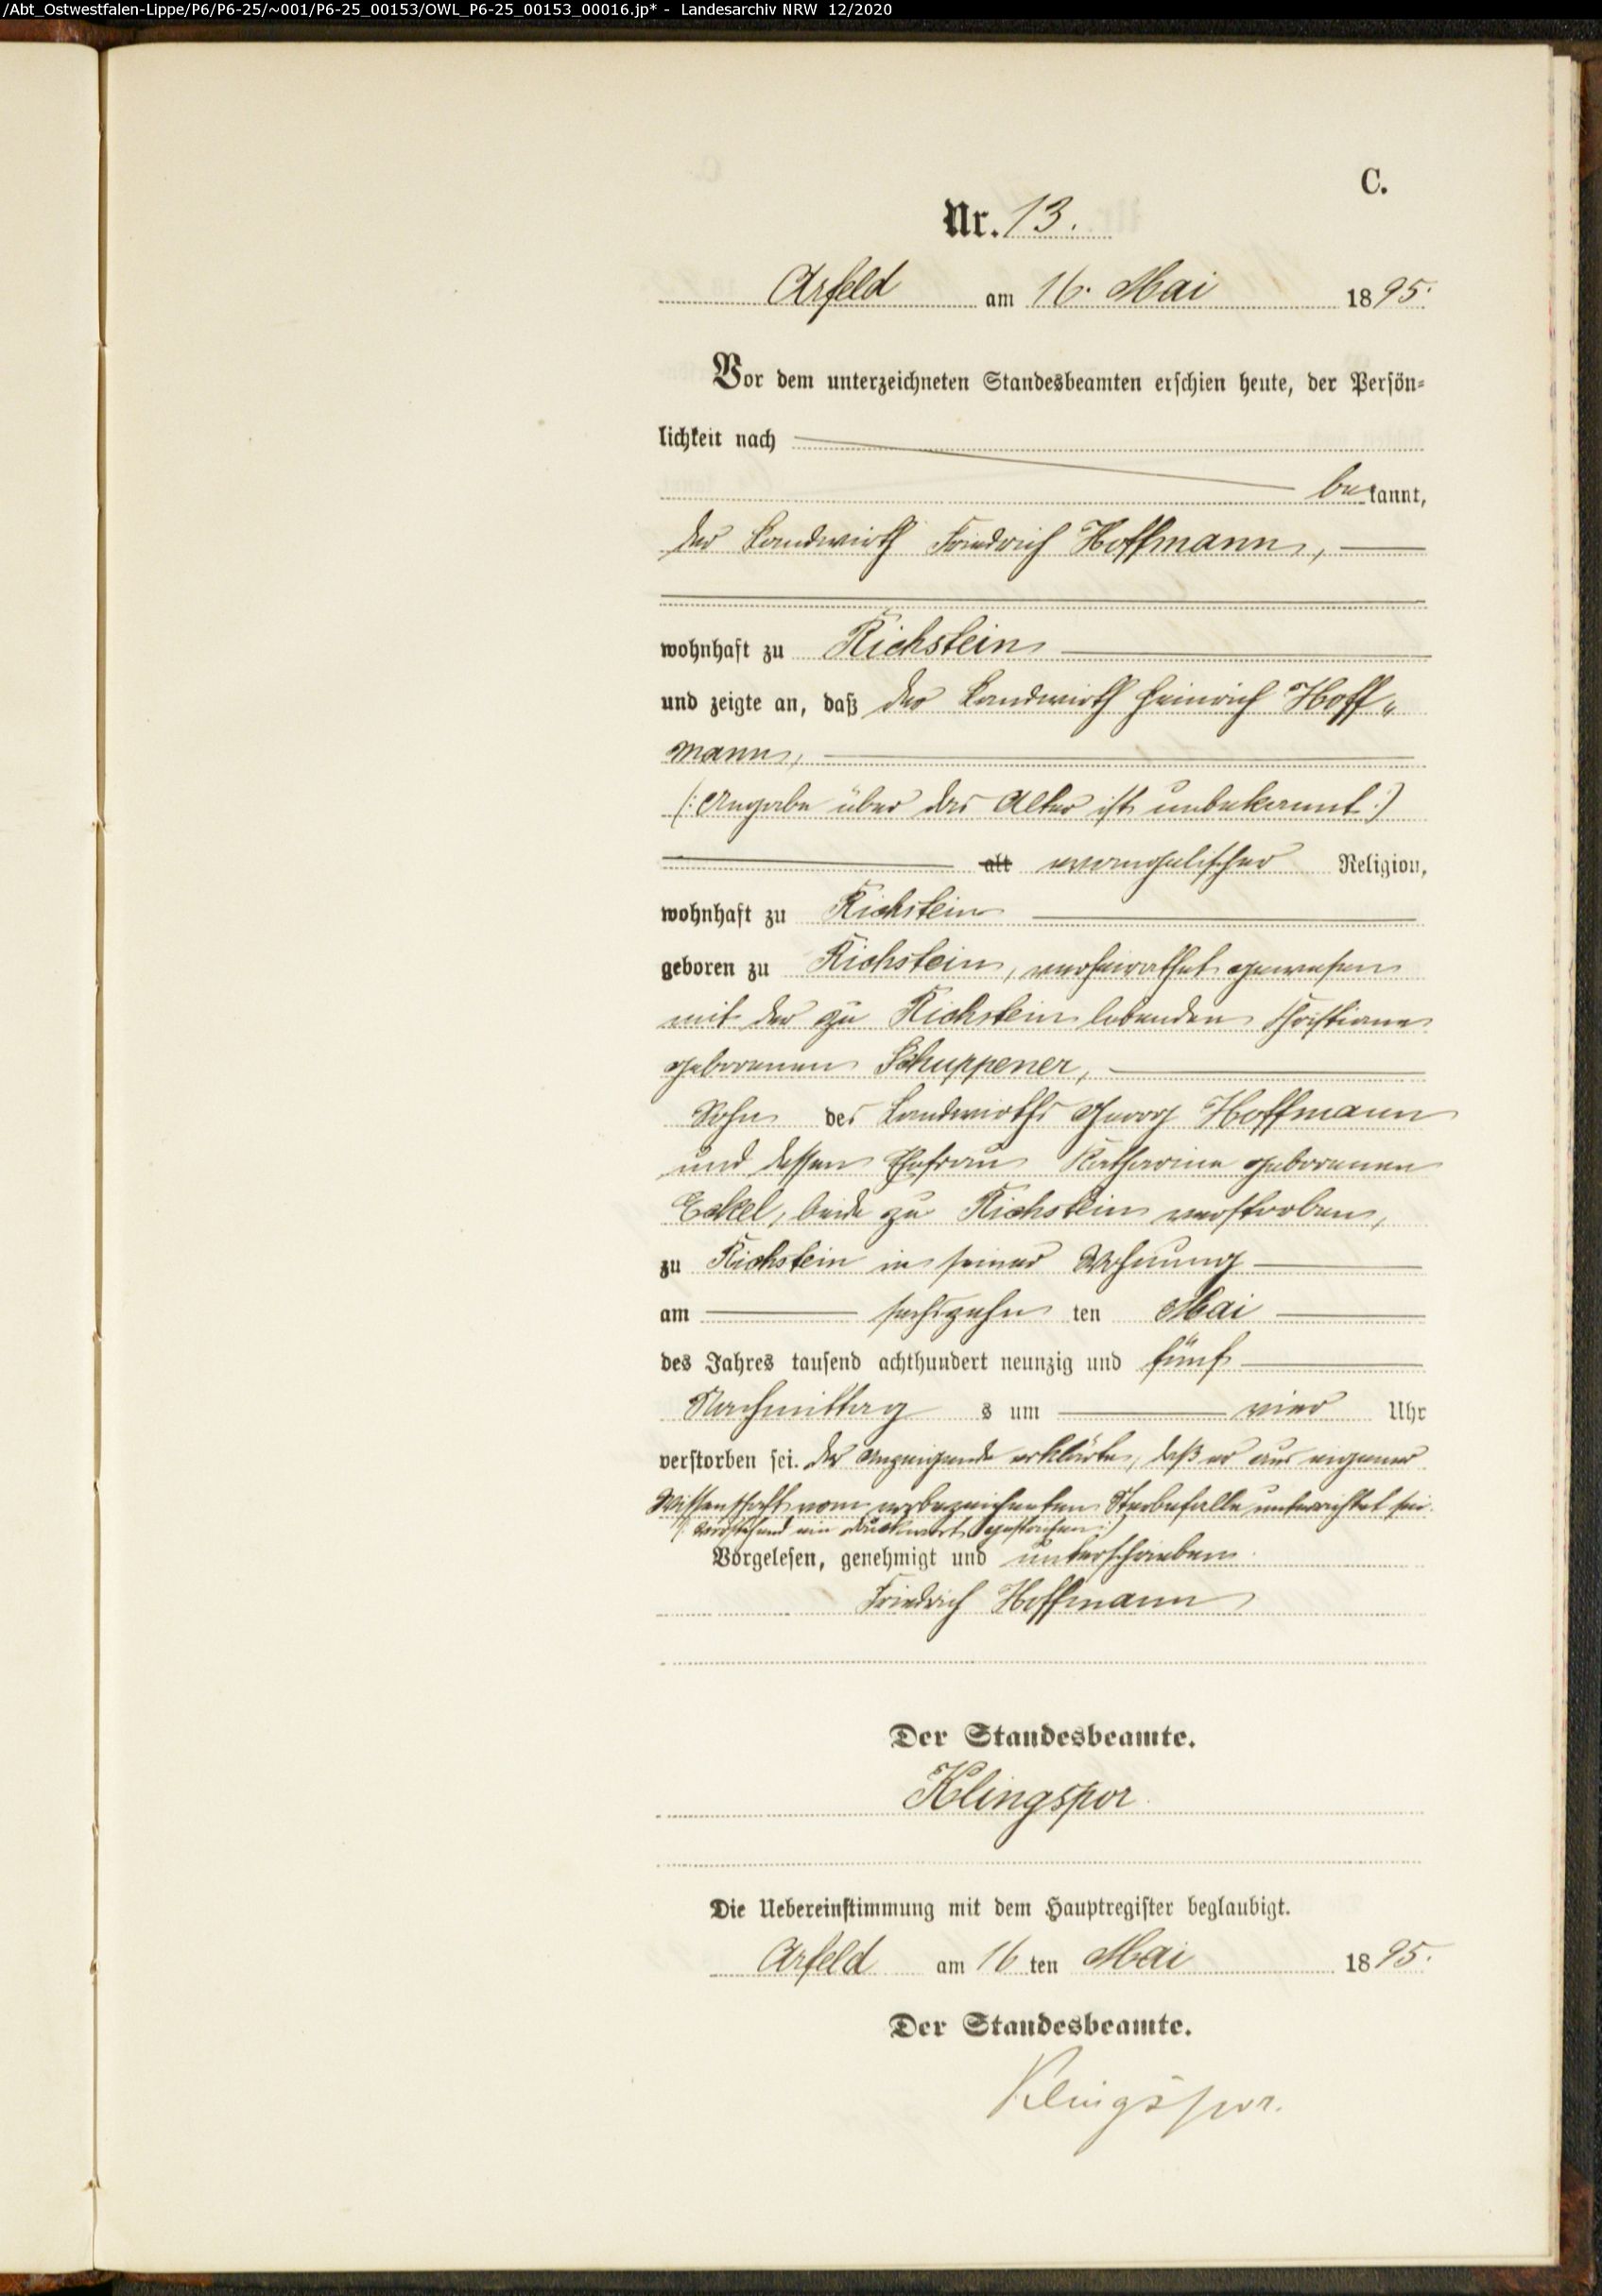 /Abt_Ostwestfalen-Lippe/P6/P6-25/~001/P6-25_00153/OWL_P6-25_00153_00016.jp* - Landesarchiv NRW 12/2020
C.
Nr. 13.
Arfeld am 16. Mai 1895.
Vor dem unterzeichneten Standesbeamten erschien heute, der Persön-
lichkeit nach
bekannt,
der Landwirth Friedrich Hoffmann,
wohnhaft zu Richstein
und zeigte an, daß der Landwirth Heinrich Hoff-
mann,
(: Angabe über das Alter ist unbekannt :)
alt evangelischer Religion,
wohnhaft zu Richstein
geboren zu Richstein, verheirathet gewesen
mit der zu Richstein lebenden Christiane
geborenen Schuppener,
Sohn des Landwirths Georg Hoffmann
und dessen Ehefrau Katharine geborenen
Eckel, beide zu Richstein verstorben,
zu Richstein in seiner Wohnung
am sechszehn ten Mai
des Jahres tausend achthundert neunzig und fünf
Nachmittag s um vier Uhr
verstorben sei. Der Anzeigende erklärte, daß er aus eigener
Wissenschaft vom vorbezeichneten Sterbefalle unterrichtet sei.
(: Vorstehend ein Druckwort gestrichen :)
Vorgelesen, genehmigt und unterschrieben
Friedrich Hoffmann
Der Standesbeamte.
Klingspor
Die Uebereinstimmung mit dem Hauptregister beglaubigt.
Arfeld am 16 ten Mai 1895.
Der Standesbeamte.
Klingspor.